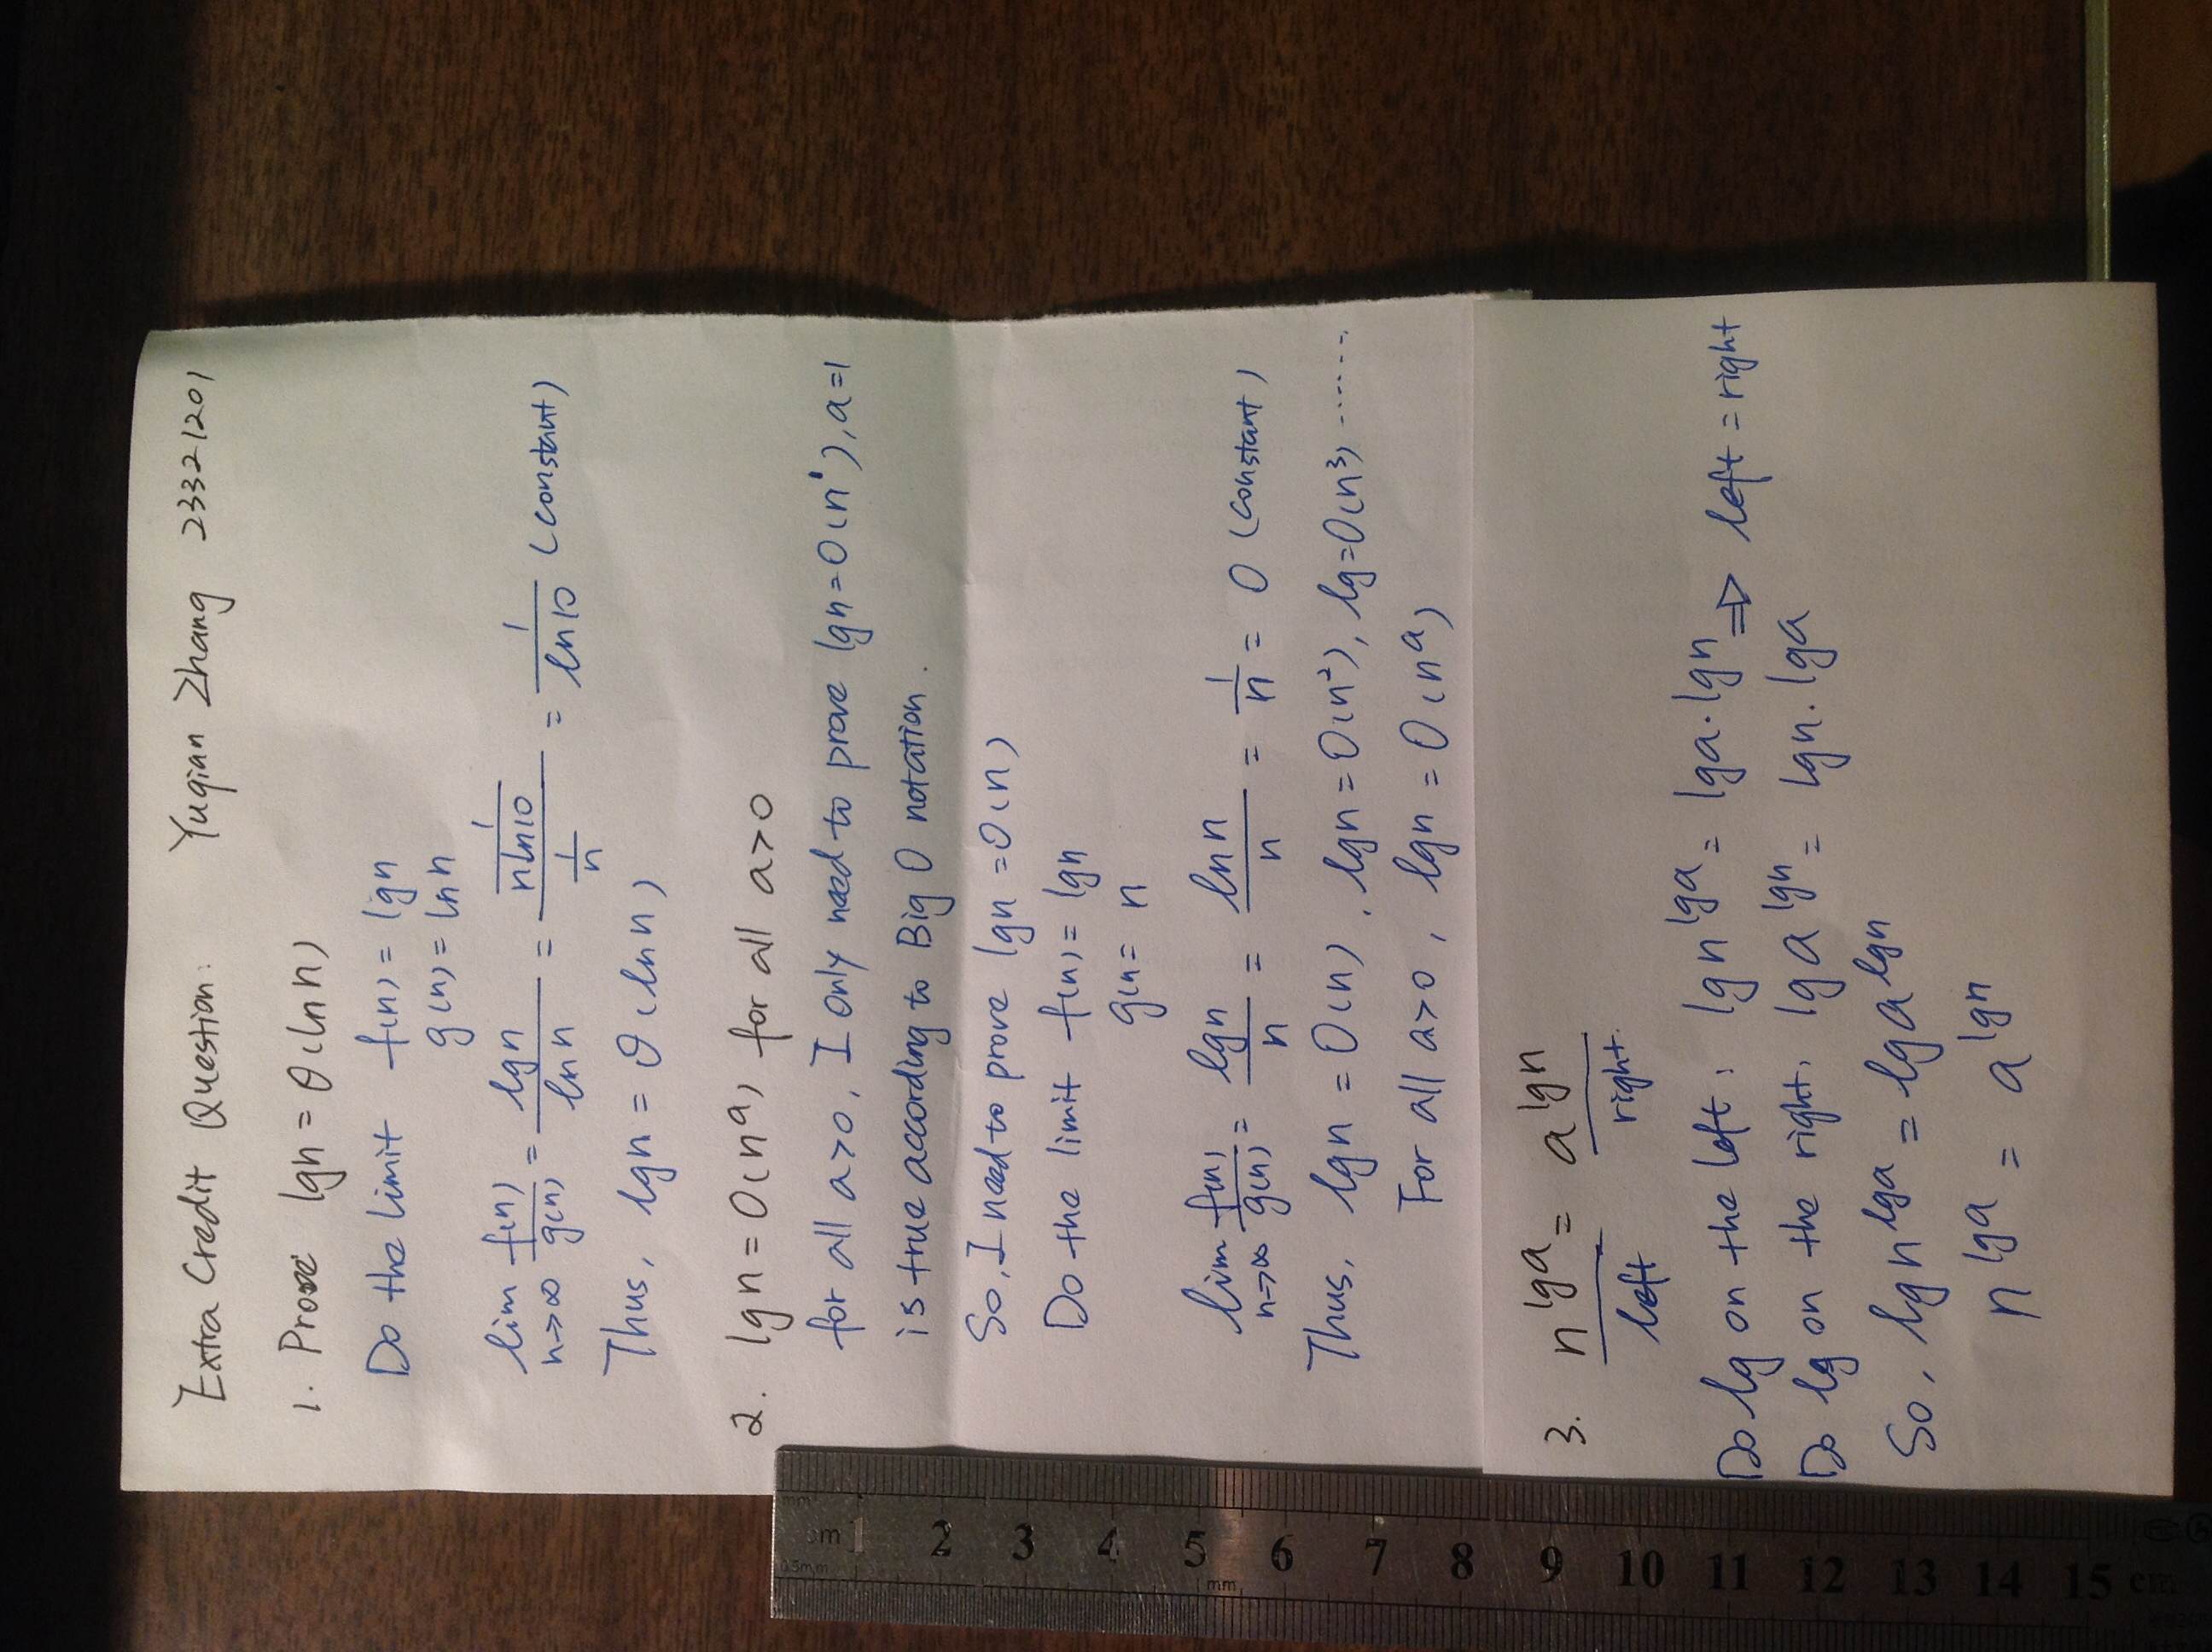 Extra Credit Question: Yuqian Zhang 23321201
1. Prove lgn = θ(ln n)
Do the limit f(n) = lgn
g(n) = ln n
lim n->∞ f(n)/g(n) = lgn/ln n = (1/(n ln10))/(1/n) = 1/ln10 (constant)
Thus, lgn = θ(ln n)
2. lgn = O(n^a) for all a>0
for all a>0, I only need to prove lgn = O(n^1), a=1
is true according to Big O notation.
So, I need to prove lgn = O(n)
Do the limit f(n) = lgn
g(n = n
lim n->∞ f(n)/g(n) = lgn/n = ln n/n = 1/n = 0 (constant)
Thus, lgn = O(n), lgn = O(n^2), lg=O(n^3) ......
For all a>0, lgn = O(n^a)
3. n^lga = a^lgn
left right.
Do lg on the left, lgn^lga = lga·lgn => left = right
Do lg on the right, lga^lgn = lgn·lga
So, lgn^lga = lga^lgn
n^lga = a^lgn
mm
0.5mm
1
2
3
4
5
mm
6
7
8
9
10
11
12
13
14
15 cm